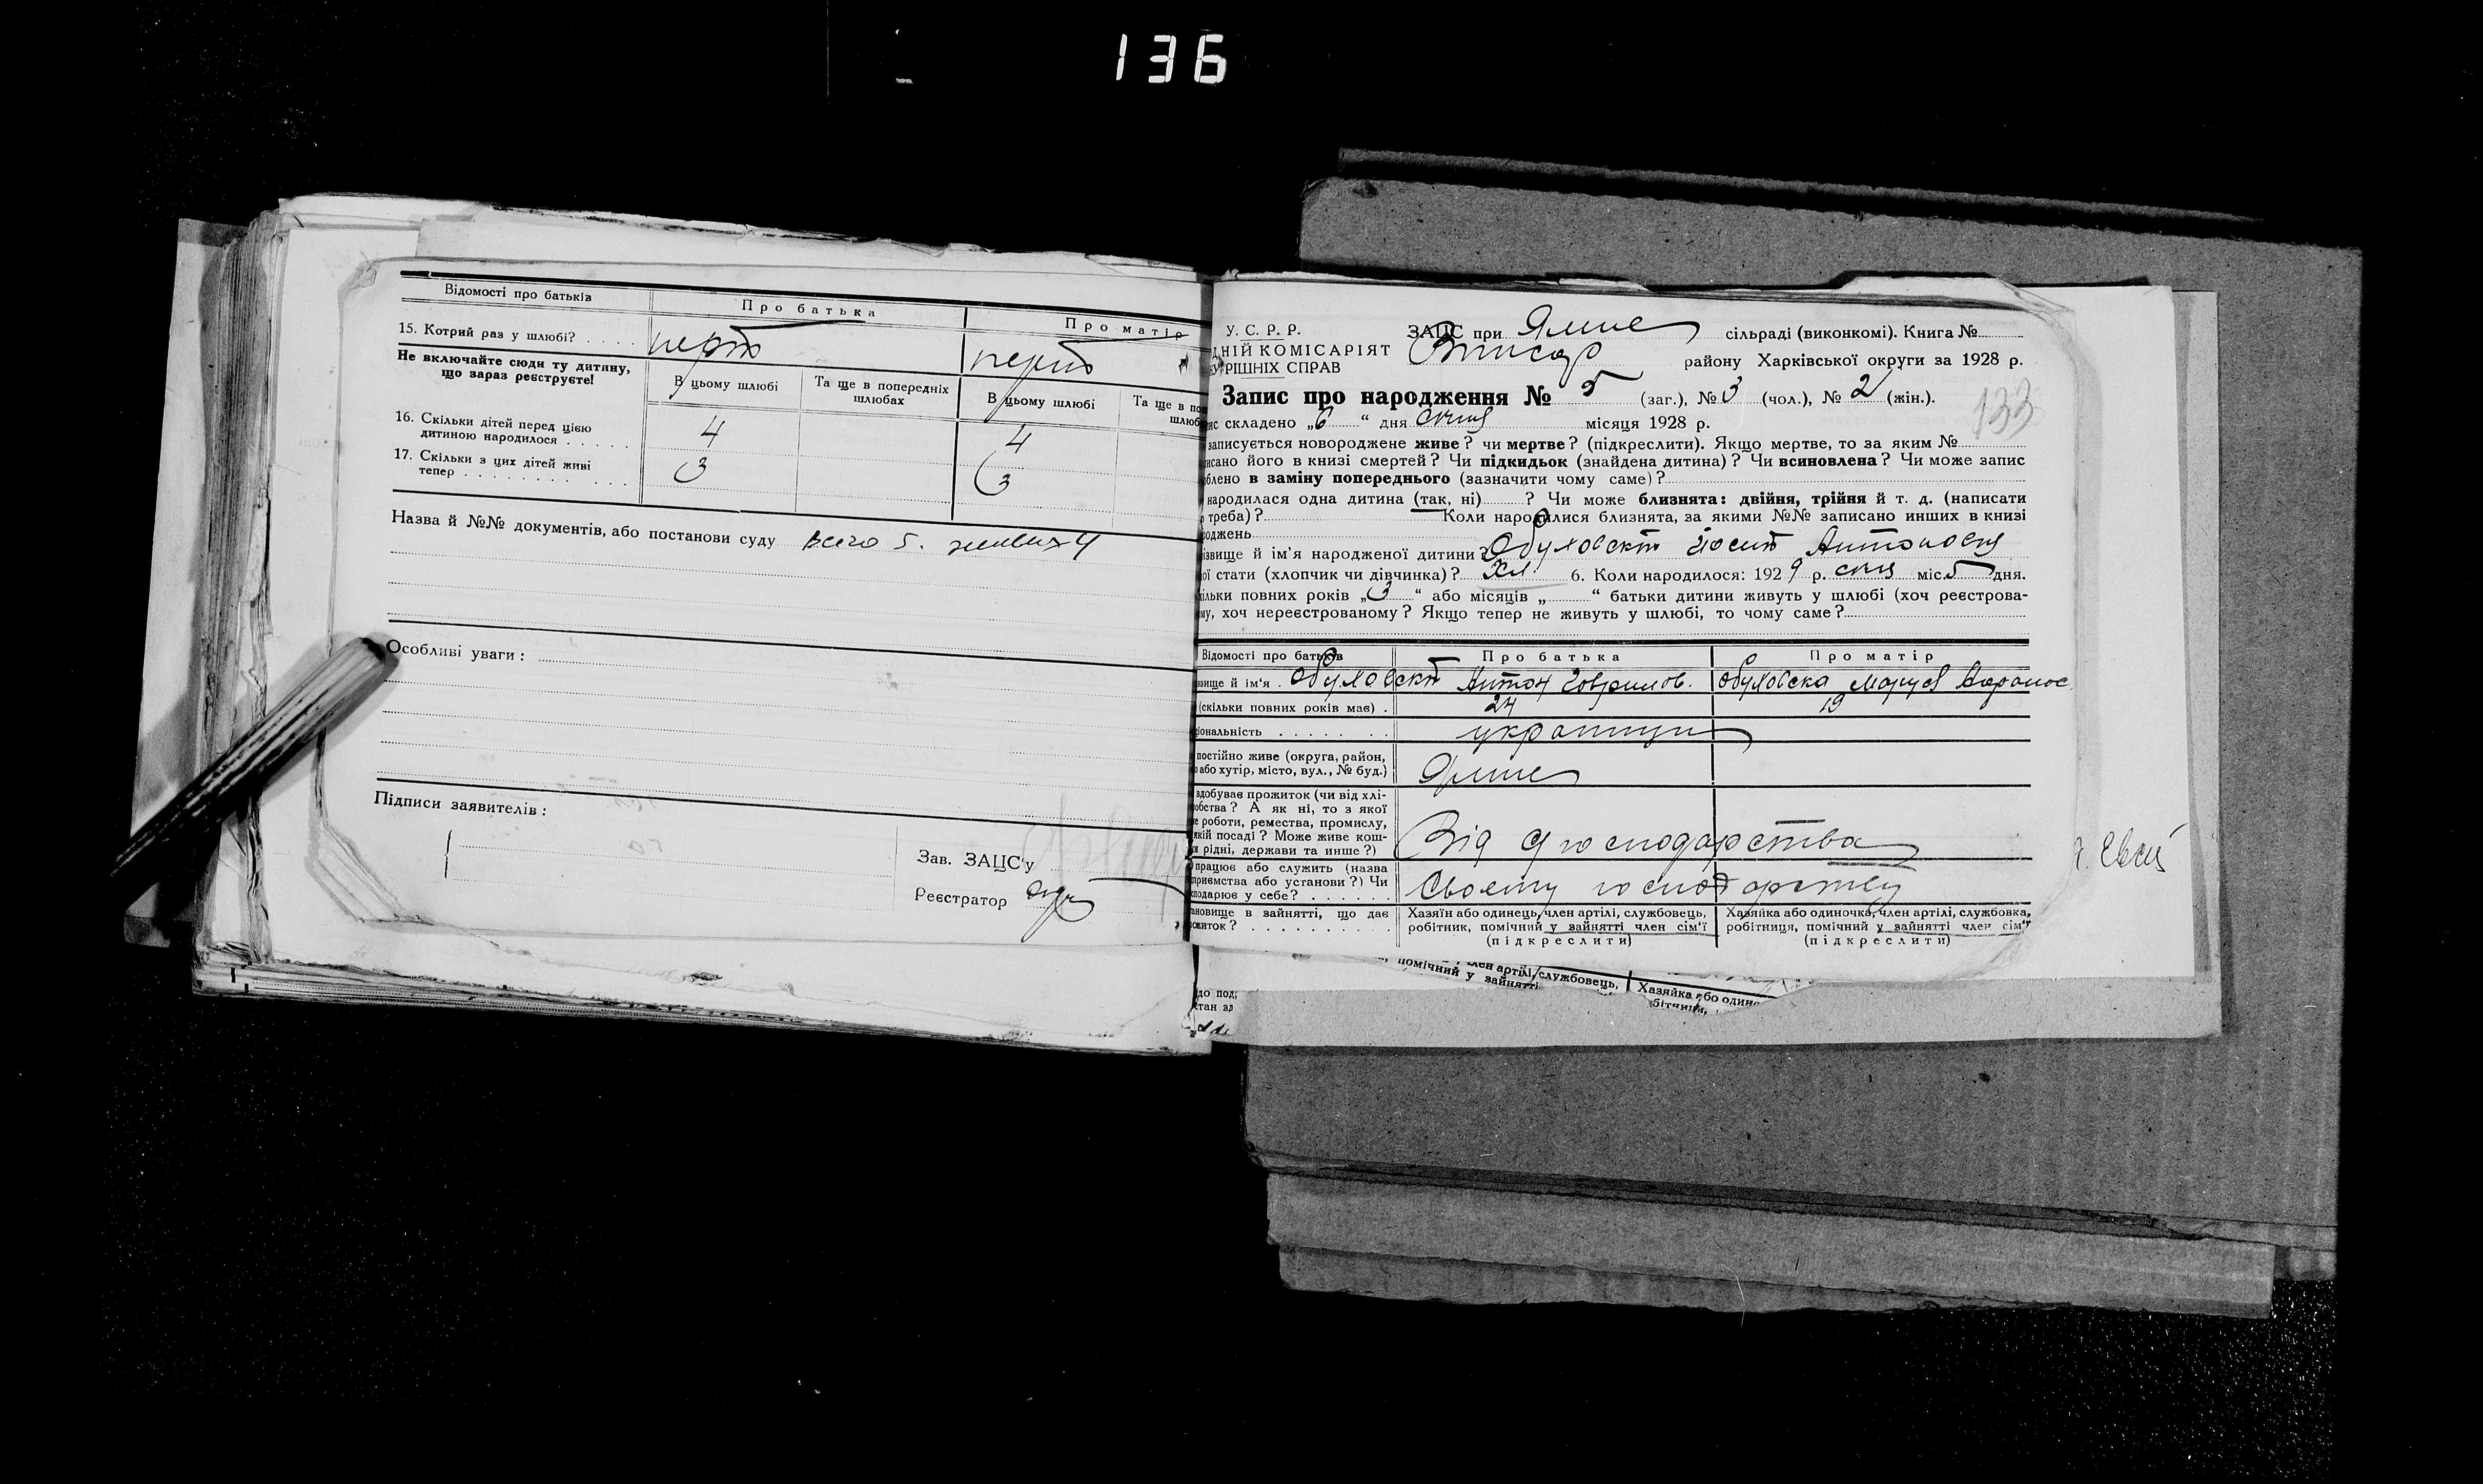 136
Відомості про батьків
Про батька
Про матір
15. Котрий раз у шлюбі? . . . .
Не включайте сюди ту дитину,
що зараз реєструєте!
В цьому шлюбі
Та ще в попередніх
шлюбах
В цьому шлюбі
Та ще в поп
шлюб
16. Скільки дітей перед цією
дитиною народилося . . . . .
4
4
17. Скільки з цих дітей живі
тепер . . . . . . . . . . . .
3
3
Назва й №№ документів, або постанови суду всего 5. живих 4
Особливі уваги :
Підписи заявителів :
Зав. ЗАЦС'у
Реєстратор
У. С. Р. Р.
ДНІЙ КОМІСАРІЯТ
РІШНІХ СПРАВ
ЗАЦС при сільраді (виконкомі). Книга №
району Харківської округи за 1928 р.
Запис про народження № 5 (заг.), № 3 (чол.), № 2 (жін.).
133
ис складено „6“ дня січня місяця 1928 р.
записується новороджене живе? чи мертве? (підкреслити). Якщо мертве, то за яким №
писано його в книзі смертей? Чи підкидьок (знайдена дитина)? Чи всиновлена? Чи може запис
облено в заміну попереднього (зазначити чому саме)?
народилася одна дитина (так, ні) ? Чи може близнята: двійня, трійня й т. д. (написати
треба)? Коли народилися близнята, за якими №№ записано инших в книзі
роджень
ізвище й ім'я народженої дитини? Обуховскій Йосип Антонович
ої стати (хлопчик чи дівчинка)? Хл. 6. Коли народилось: 1929 р. січня міс. 5 дня.
ільки повних років „3“ або місяців „ “ батьки дитини живуть у шлюбі (хоч реєстрова-
му, хоч нереєстрованому? Якщо тепер не живуть у шлюбі, то чому саме?
Відомості про батьків
Про батька
Про матір
звище й ім'я . Обуховскій Антон Гаврилов.
Обуховска Маруся
(скільки повних років має) .
24
19
іональність . . . . . . .
українци
постійно живе (округа, район,
або хутір, місто, вул., № буд.)
здобуває прожиток (чи від хлі-
обства? А як ні, то з якої
е роботи, ремества, промислу,
якій посаді? Може живе кош-
и рідні, держави та инше?)
Від господарства
працює або служить (назва
приємства або установи?) Чи
сподарює у себе? . . . . . .
Своєму господарству
ановище в зайнятті, що дає
ожиток? . . . . . . . . . .
Хазяїн або одинець, член артілі, службовець,
робітник, помічний у зайнятті член сім'ї
(підкреслити)
Хазяйка або одиночка, член артілі, службовка,
робітниця, помічний у зайнятті член сім'ї
(підкреслити)
член артілі, службовець,
помічний у зайнятті
Хазяйка або один
бітниця,
до под
стан зд